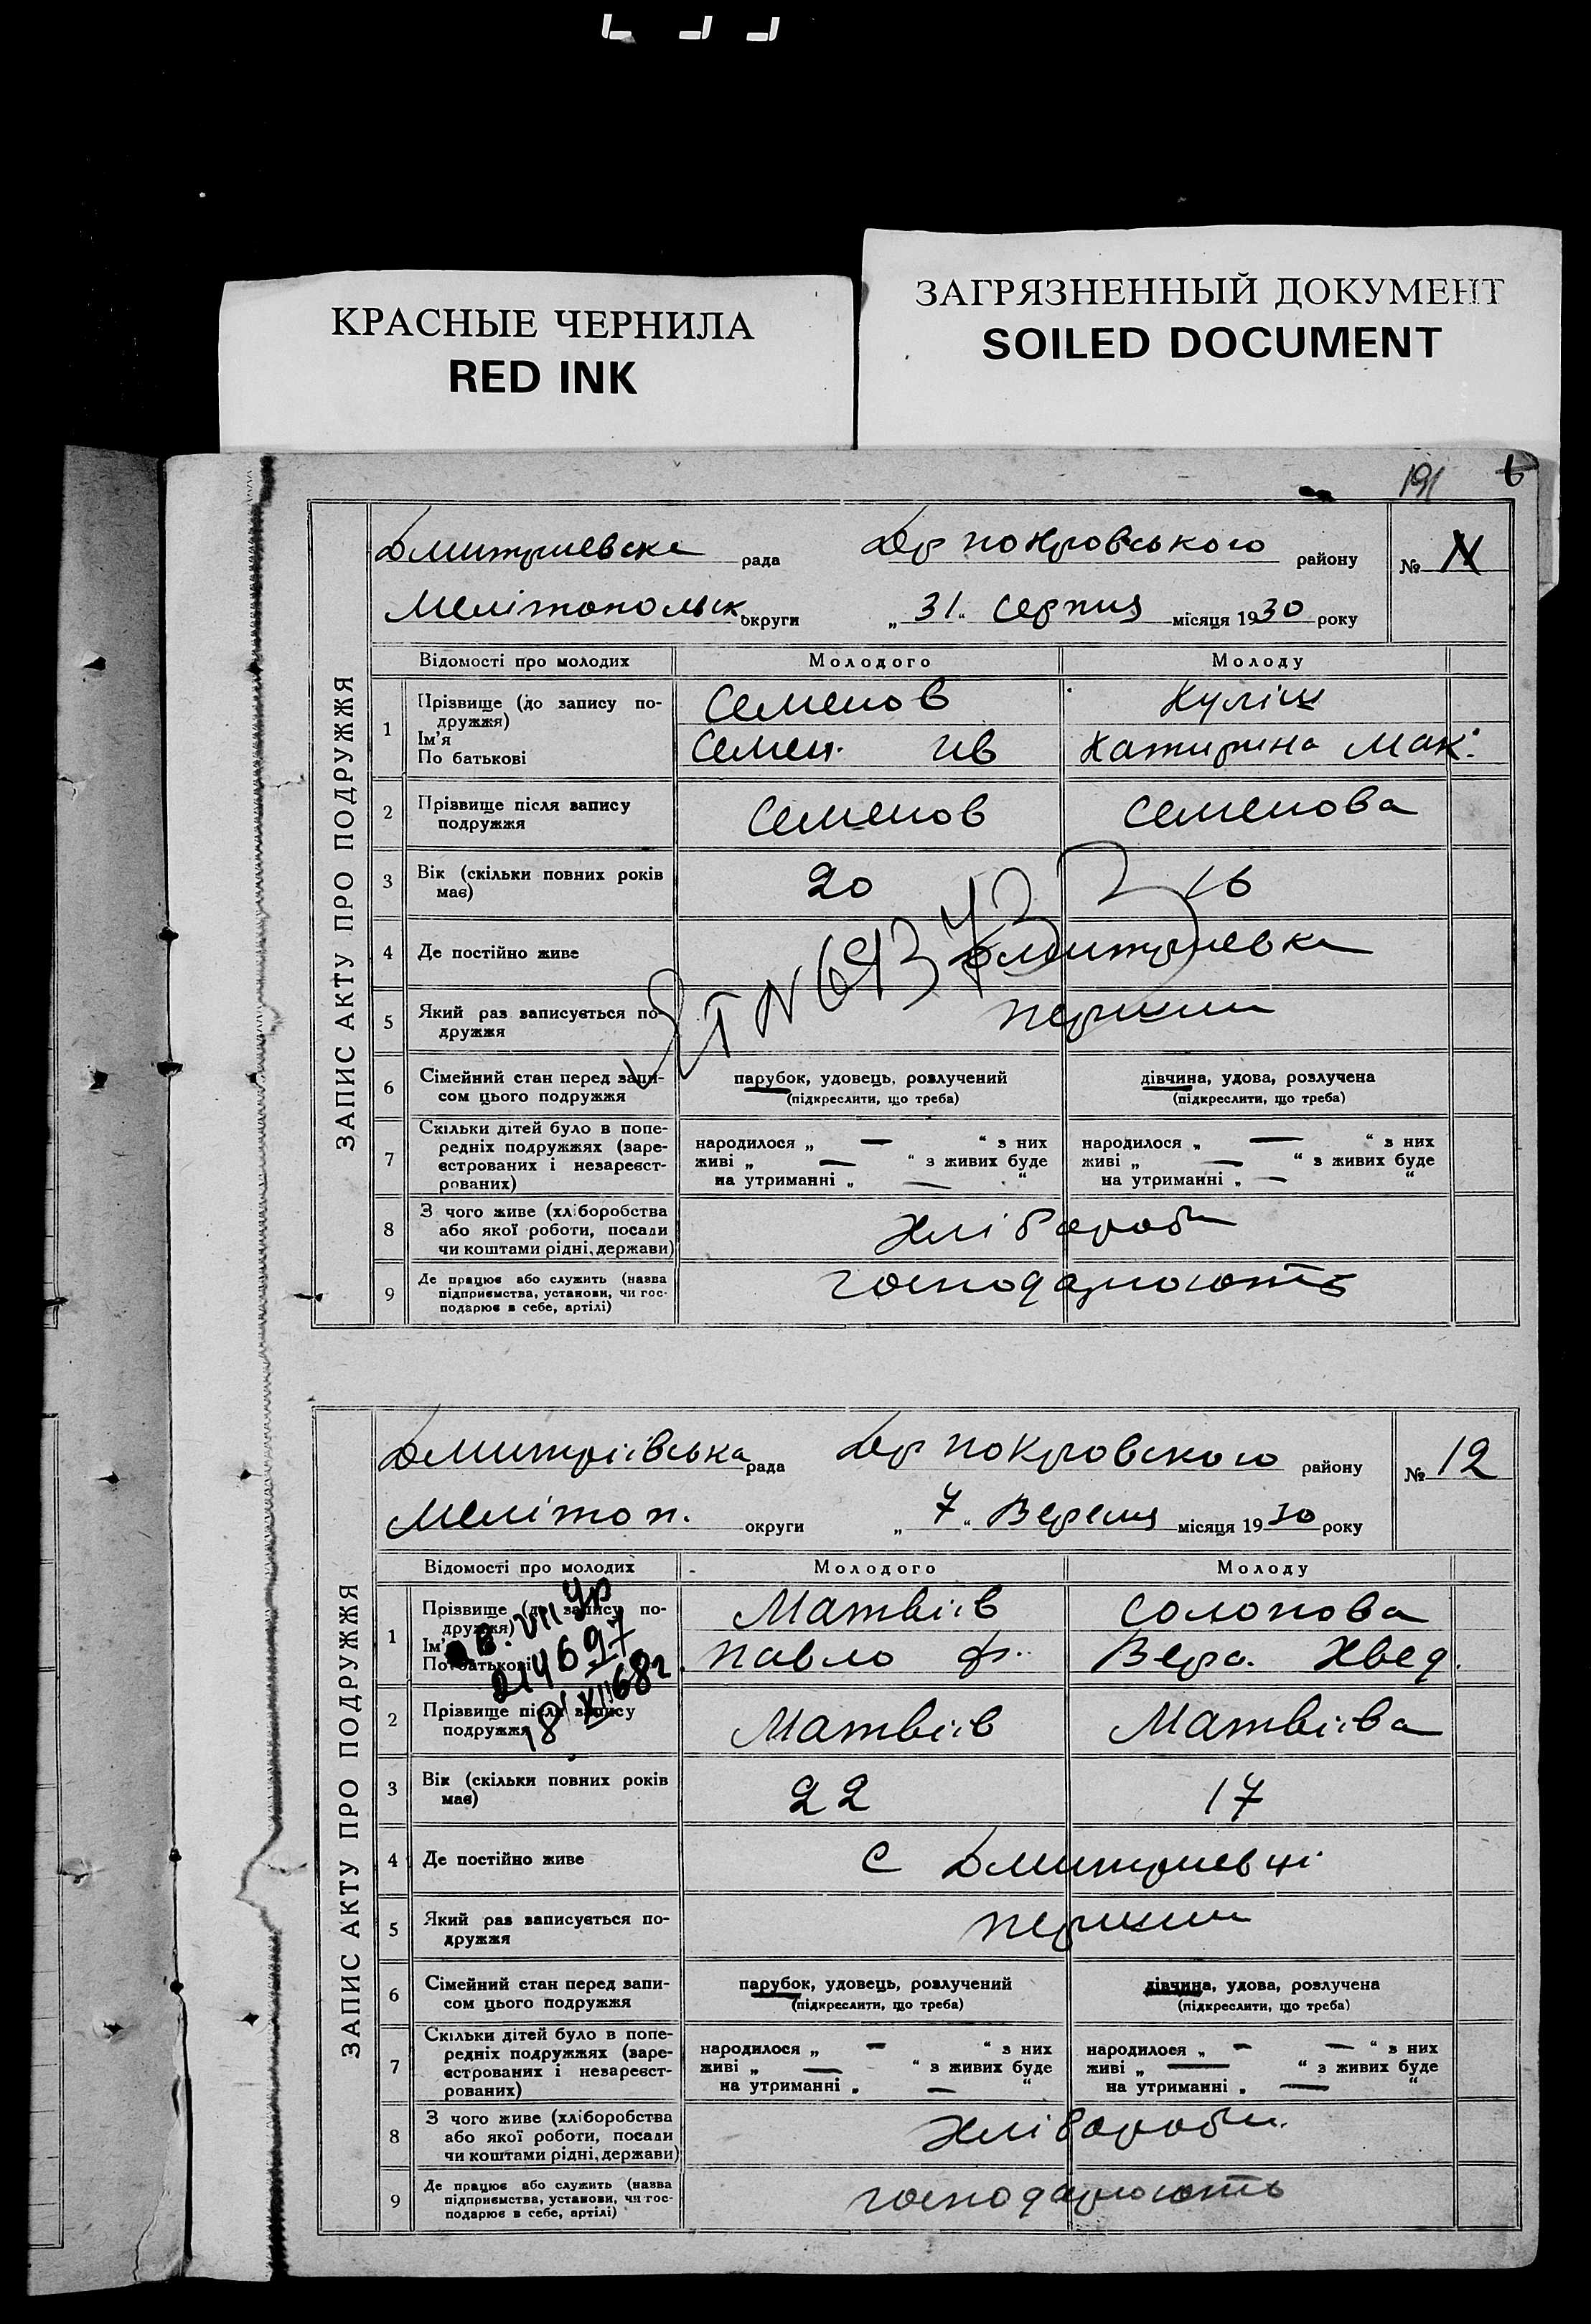 КРАСНЫЕ ЧЕРНИЛА
RED INK
ЗАГРЯЗНЕННЫЙ ДОКУМЕНТ
SOILED DOCUMENT
191 6
ЗАПИС АКТУ ПРО ПОДРУЖЖЯ
Дмитриевска рада Др покровського району №
Мелітопольск округи „31“ Серпня місяця 1930 року
Відомості про молодих Молодого Молоду
1 Прізвище (до запису по-
дружжя)
Ім'я
По батькові
Семенов Куліш
Семен. Ив Катирина Мак.
2 Прізвище після запису
подружжя
Семенов Семенова
3 Вік (скільки повних років
має)
20 16
4 Де постійно живе Дмитриевка
5 Який раз записується по-
дружжя
перший
6 Сімейний стан перед запи-
сом цього подружжя
парубок, удовець, розлучений дівчина, удова, розлучена
(підкреслити, що треба) (підкреслити, що треба)
7 Скільки дітей було в попе-
редніх подружжях (заре-
єстрованих і незареєст-
рованих)
народилося „ — “ з них народилося „ — “ з них
живі „ — “ з живих буде живі „ — “ з живих буде
на утриманні „ — “ на утриманні „ — “
8 З чого живе (хліборобства
або якої роботи, посади
чи коштами рідні, держави)
Хлібароби
9 Де працює або служить (назва
підприємства, установи, чи гос-
подарює в себе, артілі)
господарюють
ЗАПИС АКТУ ПРО ПОДРУЖЖЯ
Дмитріівська рада Др покровского району № 12
Мелітоп. округи „7“ Вересня місяця 1930 року
Відомості про молодих Молодого Молоду
1 Прізвище (до запису по-
дружжя)
Ім'я
По батькові
Матвіів Солопова
Павло Ф. Вера. Хвед.
214697
18/XII 68г
2 Прізвище після запису
подружжя
Матвіів Матвіїва
3 Вік (скільки повних років
має)
22 17
4 Де постійно живе С Дмитриевці
5 Який раз записується по-
дружжя
перший
6 Сімейний стан перед запи-
сом цього подружжя
парубок, удовець, розлучений дівчина, удова, розлучена
(підкреслити, що треба) (підкреслити, що треба)
7 Скільки дітей було в попе-
редніх подружжях (заре-
єстрованих і незареєст-
рованих)
народилося „ — “ з них народилося „ — — “ з них
живі „ — “ з живих буде живі „ — “ з живих буде
на утриманні „ — “ на утриманні „ — “
8 З чого живе (хліборобства
або якої роботи, посади
чи коштами рідні, держави)
Хлібароби.
9 Де працює або служить (назва
підприємства, установи, чи гос-
подарює в себе, артілі)
господарюють